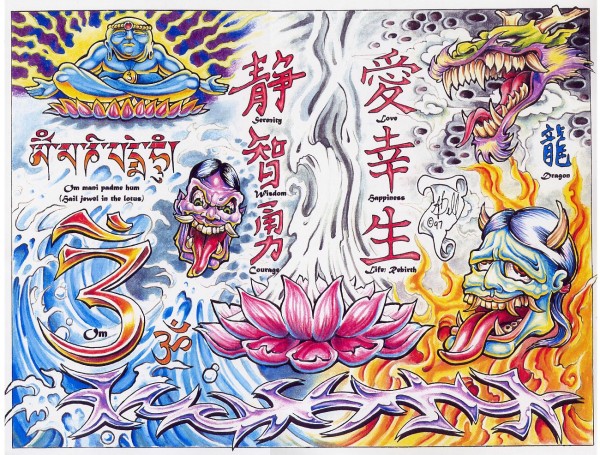 静
Serevity
愛
Love
龍
Dragon
ༀམཎིཔདྨེཧཱུྃ
Om mani padme hum
(Hail jewel in the lotus)
智
Wisdom
幸
Happiness
勇
Courage
生
Life: Rebirth
©97
Om
ॐ